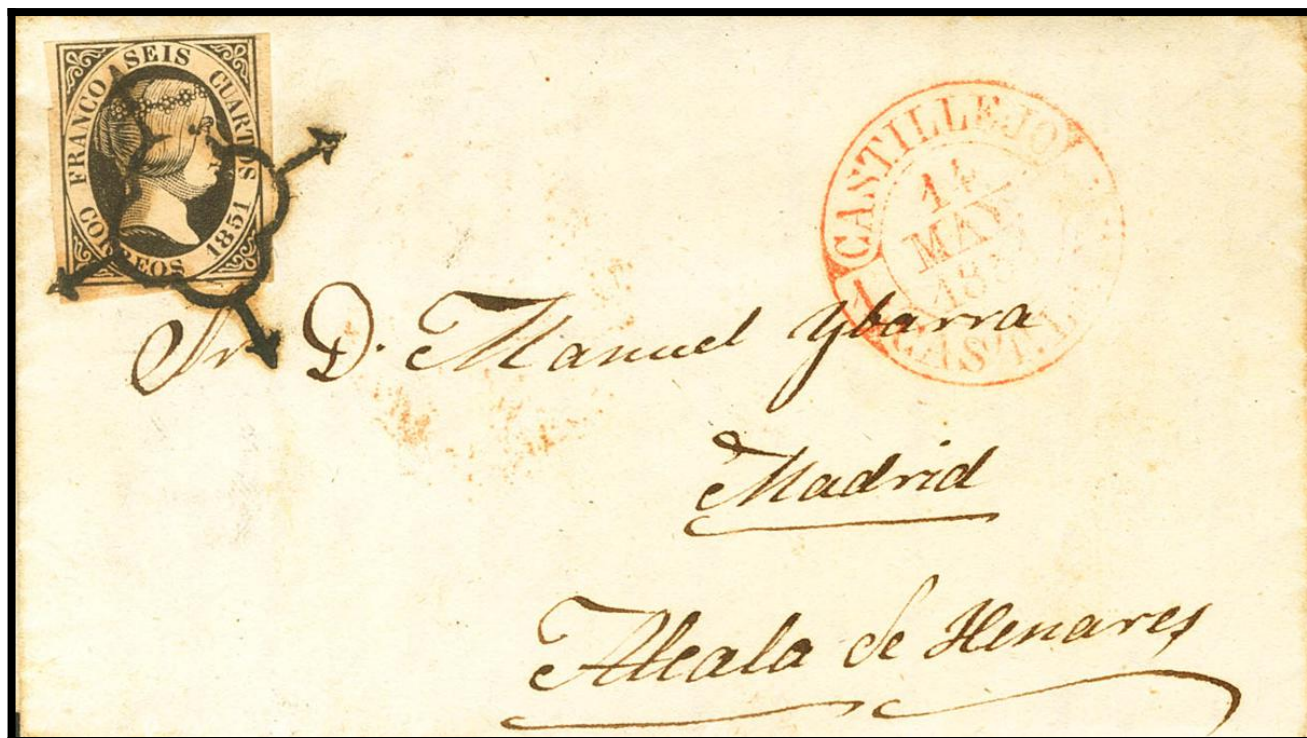 FRANCO SEIS CUARTOS
CORREOS 1851
CASTILLEJO
14
MAY
CAST.L
Sr. D. Manuel Ybarra
Madrid
Alcala de Henares